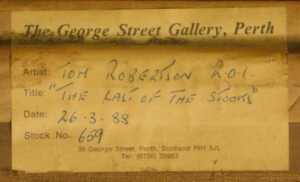 The George Street Gallery, Perth
Artist: TOM ROBERTSON R.O.I.
Title: "THE LAST OF THE STOOKS"
Date: 26-3-88
Stock No. 659
38 George Street, Perth, Scotland PH1 5JL
Tel: